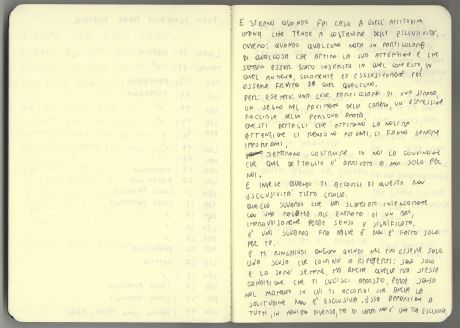 È STRANO QUANDO FAI CASO A QUELL'ATTITUDINE
UMANA CHE TENDE A COSTRUIRE DELLE ESCLUSIVITÀ,
OVVERO, QUANDO QUALCUNO NOTA UN PARTICOLARE
DI QUALCOSA CHE ATTIRA LA SUA ATTENZIONE E CHE
SEMBRA ESSER STATO INSERITO IN QUEL CONTESTO, IN
QUEL MOMENTO, SOLAMENTE ED ESCLUSIVAMENTE PER
ESSERE FRUITO DA QUEL QUALCUNO.
PER ESEMPIO, UNA LUCE PARTICOLARE DI UNA STRADA,
UN SEGNO NEL PAVIMENTO DELLA CAMERA, UN'ESPRESSIONE
FACCIALE DELLA PERSONA AMATA.
QUESTI DETTAGLI CHE ATTIRANO LA NOSTRA
ATTENZIONE CI RENDONO POTENTI, CI FANNO SENTIRE
IMPORTANTI.
SEMBRANO COSTRUIRE IN NOI LA CONVINZIONE
CHE QUEL DETTAGLIO È ARRIVATO A NOI SOLO PER
NOI.
E INVECE QUANDO TI ACCORGI DI QUESTA NON
ESCLUSIVITÀ TUTTO CROLLA.
QUELLO SGUARDO CHE HAI SCAMBIATO INTENSAMENTE
CON UNA RAGAZZA ALL'ENTRATA DI UN BAR,
IMPROVVISAMENTE PERDE SENSO E SIGNIFICATO.
È UNO SGUARDO FRA MILLE E NON È FATTO SOLO
PER TE.
E TI RINCHIUDI ANCORA QUINDI NEL TUO ESSERE SOLO
UNA SCUSA CHE CONTINUI A RIPETERTI: SONO SOLO
E LO SARÒ SEMPRE, MA ANCHE QUELLA TUA STESSA
CONDIZIONE CHE TI CUCISCI ADDOSSO, PERDE SENSO
NEL MOMENTO IN CUI TI ACCORGI CHE ANCHE LA
SOLITUDINE NON È ESCLUSIVA, ESSA APPARTIENE A
TUTTI, IN MODO DIVERSO, MA DI CERTO NON È UNA TUA ESCLUSIVA.